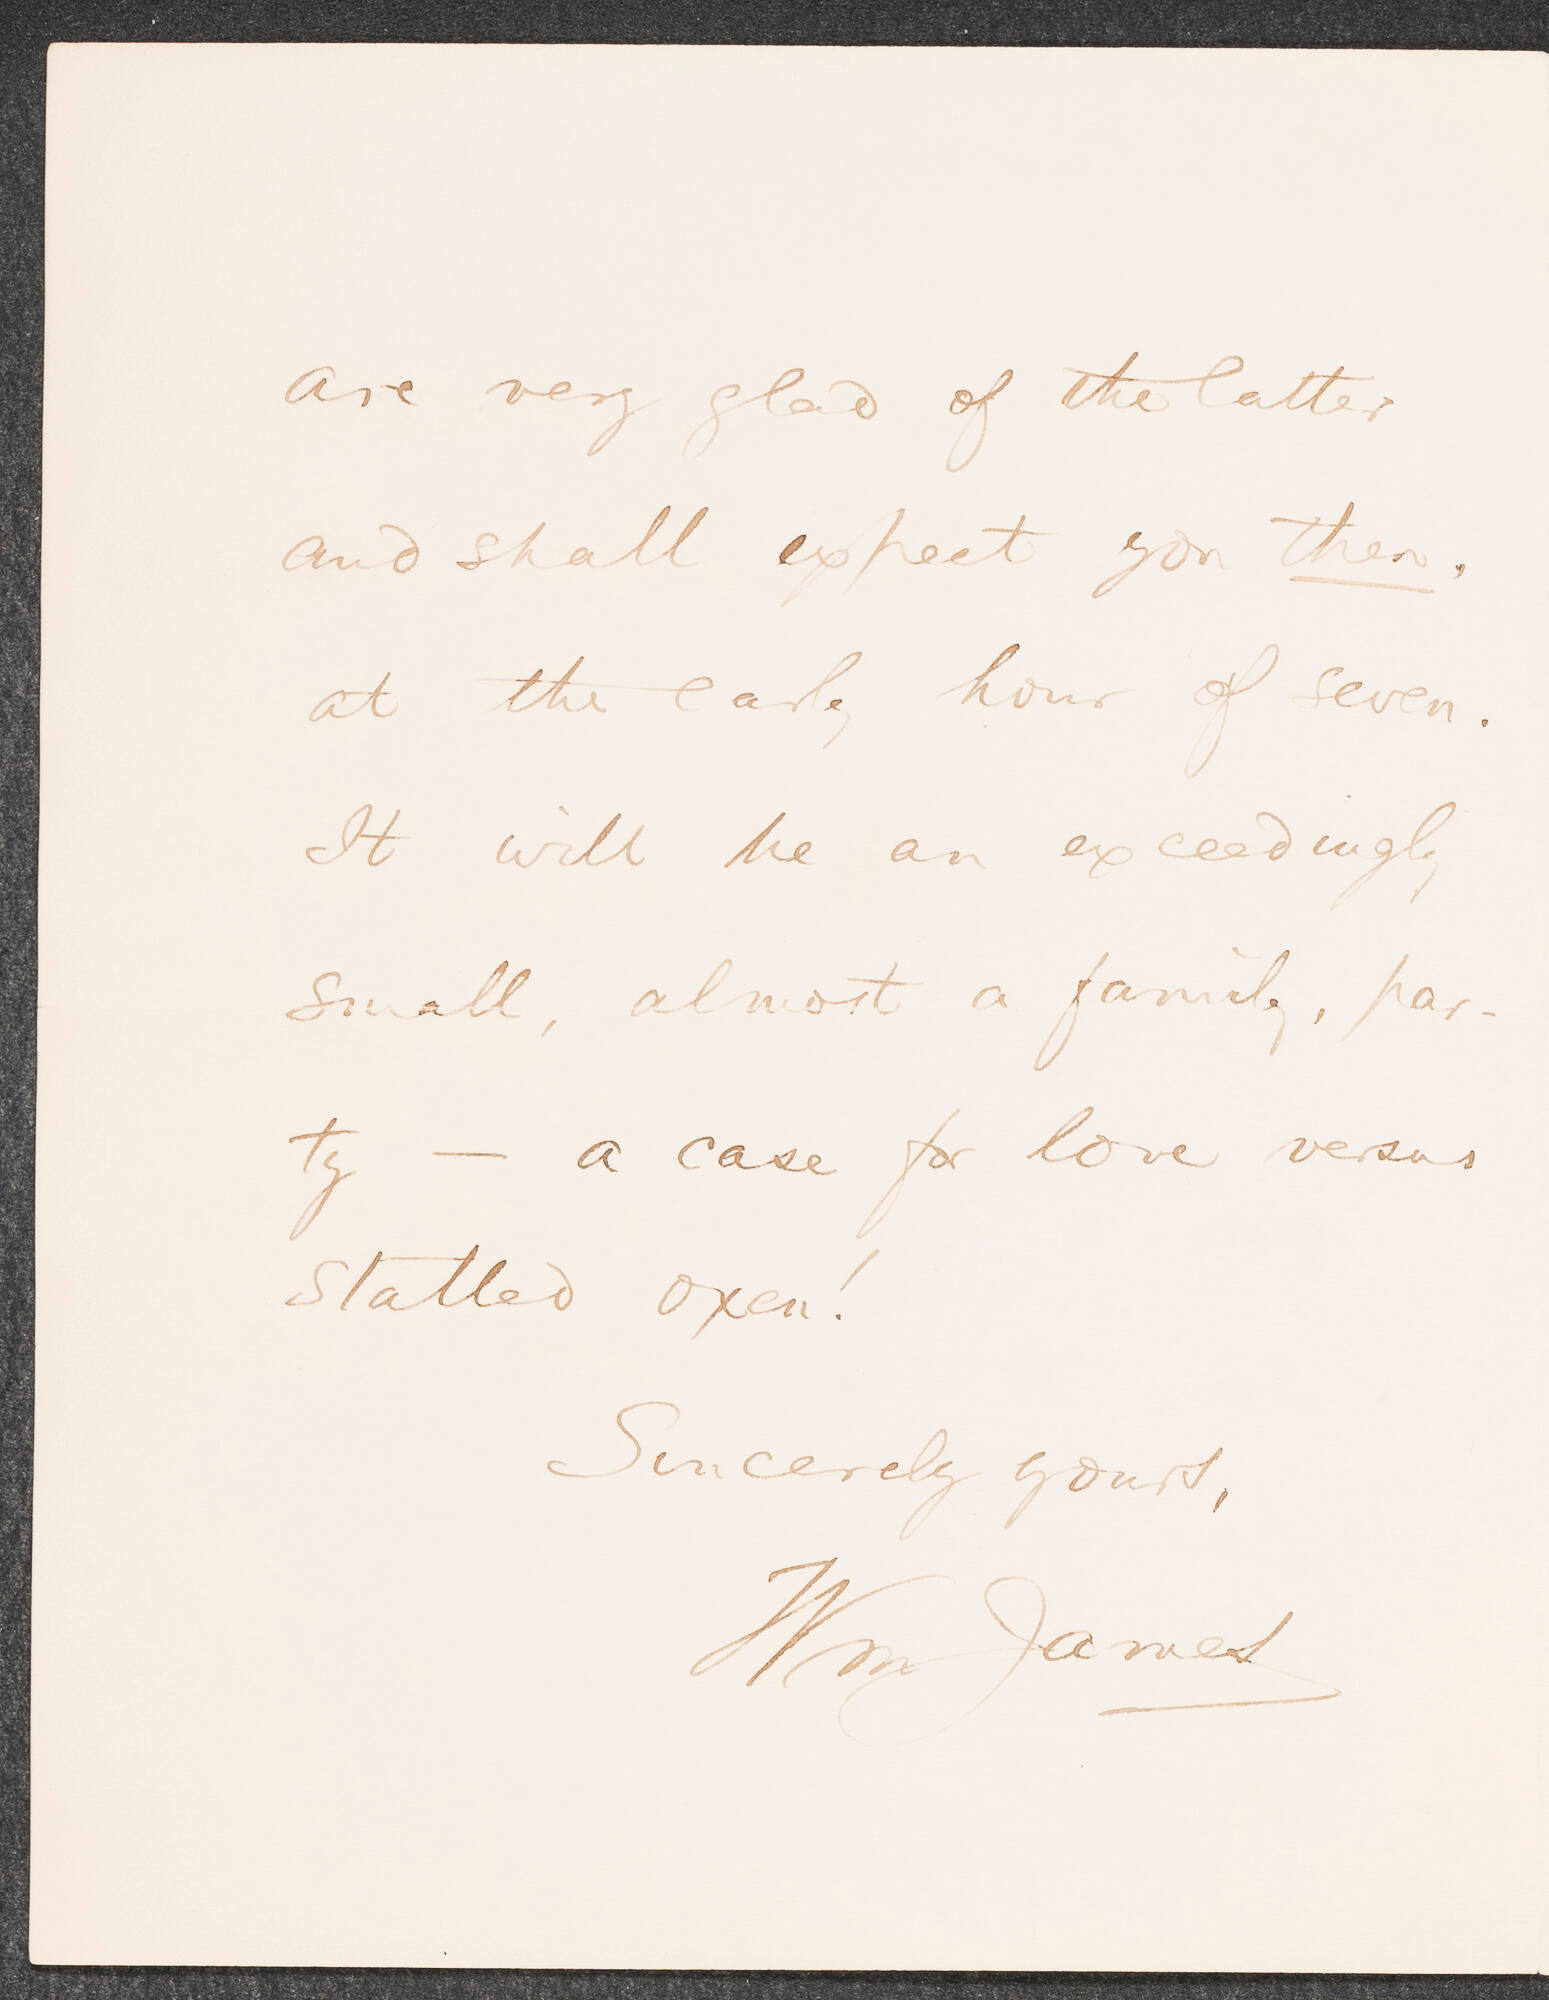 are very glad of the latter
and shall expect you then,
at the early hour of seven.
It will be an exceedingly
small, almost a family, par-
ty — a case for love versus
stalled oxen!
Sincerely yours,
Wm James